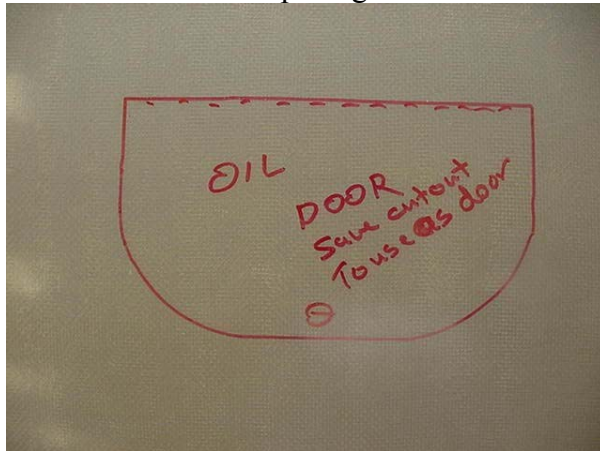 OIL
DOOR
Save cutout
To use as door